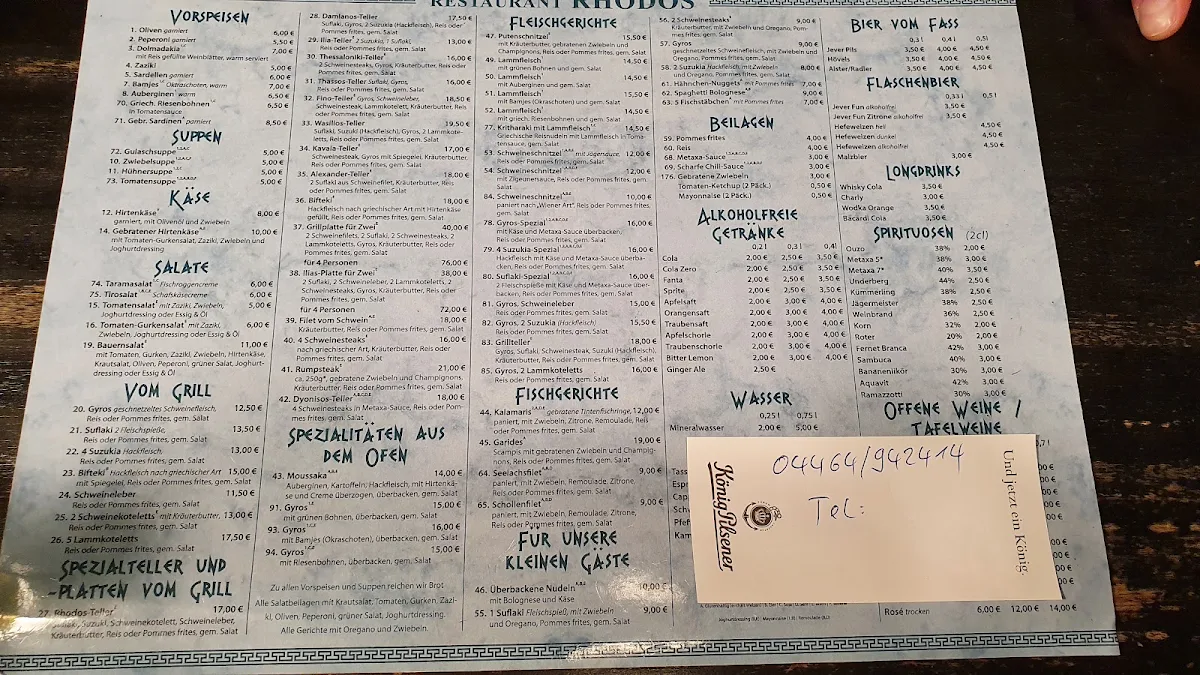 RESTAURANT RHODOS
VORSPEISEN
1. Oliven garniert 6,00 €
2. Peperoni garniert 5,50 €
3. Dolmadakia 7,00 €
mit Reis gefüllte Weinblätter, warm serviert
4. Zaziki 5,00 €
5. Sardellen garniert 6,00 €
7. Bamjes Okraschoten, warm 7,00 €
8. Auberginen warm 6,50 €
70. Griech. Riesenbohnen 6,50 €
in Tomatensauce
71. Gebr. Sardinen garniert 8,50 €
SUPPEN
72. Gulaschsuppe 5,00 €
10. Zwiebelsuppe 5,00 €
11. Hühnersuppe 5,00 €
73. Tomatensuppe 5,00 €
KÄSE
12. Hirtenkäse 8,00 €
garniert, mit Olivenöl und Zwiebeln
14. Gebratener Hirtenkäse 10,00 €
mit Tomaten-Gurkensalat, Zaziki, Zwiebeln und
Joghurtdressing
SALATE
74. Taramasalat Fischroggencreme 6,00 €
75. Tirosalat Schafskäsecreme 6,00 €
15. Tomatensalat mit Zaziki, Zwiebeln, 5,00 €
Joghurtdressing oder Essig & Öl
16. Tomaten-Gurkensalat mit Zaziki, 6,00 €
Zwiebeln, Joghurtdressing oder Essig & Öl
19. Bauernsalat 11,00 €
mit Tomaten, Gurken, Zaziki, Zwiebeln, Hirtenkäse,
Krautsalat, Oliven, Peperoni, grüner Salat, Joghurt-
dressing oder Essig & Öl
VOM GRILL
20. Gyros geschnetzeltes Schweinefleisch, 12,50 €
Reis oder Pommes frites, gem. Salat
21. Suflaki 2 Fleischspieße, 13,50 €
Reis oder Pommes frites, gem. Salat
22. 4 Suzukia Hackfleisch, 13,00 €
Reis oder Pommes frites, gem. Salat
23. Bifteki Hackfleisch nach griechischer Art 15,00 €
mit Spiegelei, Reis oder Pommes frites, gem. Salat
24. Schweineleber 11,50 €
Reis oder Pommes frites, gem. Salat
25. 2 Schweinekoteletts mit Kräuterbutter, 13,00 €
Reis oder Pommes frites, gem. Salat
26. 5 Lammkoteletts 17,50 €
Reis oder Pommes frites, gem. Salat
SPEZIALTELLER UND
-PLATTEN VOM GRILL
27. Rhodos-Teller 17,00 €
Suzuki, Schweinekotelett, Schweineleber,
Kräuterbutter, Reis oder Pommes frites, gem. Salat
28. Damianos-Teller 17,50 €
Suflaki, Gyros, 2 Suzukia (Hackfleisch), Reis oder
Pommes frites, gem. Salat
29. Ilia-Teller 2 Suzukia, 1 Suflaki, 13,00 €
Reis oder Pommes frites, gem. Salat
30. Thessaloniki-Teller 16,00 €
2 Schweinesteaks, Gyros, Kräuterbutter,
Reis oder Pommes frites, gem. Salat
31. Thassos-Teller Suflaki, Gyros, 16,00 €
Reis oder Pommes frites, gem. Salat
32. Fino-Teller Gyros, Schweineleber, 18,50 €
Schweinesteak, Lammkotelett, Kräuterbutter, Reis
oder Pommes frites, gem. Salat
33. Wasilios-Teller 19,50 €
Suflaki, Suzuki (Hackfleisch), Gyros, 2 Lammkote-
letts, Reis oder Pommes frites, gem. Salat
34. Kavala-Teller 17,00 €
Schweinesteak, Gyros mit Spiegelei, Kräuterbutter,
Reis oder Pommes frites, gem. Salat
35. Alexander-Teller 18,00 €
2 Suflaki aus Schweinefilet, Kräuterbutter, Reis
oder Pommes frites, gem. Salat
36. Bifteki 18,00 €
Hackfleisch nach griechischer Art mit Hirtenkäse
gefüllt, Reis oder Pommes frites, gem. Salat
37. Grillplatte für Zwei 40,00 €
2 Schweinefilets, 2 Suflaki, 2 Schweinesteaks, 2
Lammkoteletts, Gyros, Kräuterbutter, Reis oder
Pommes frites, gem. Salat
für 4 Personen 76,00 €
38. Ilias-Platte für Zwei 38,00 €
2 Suflaki, 2 Schweineleber, 2 Lammkoteletts, 2
Schweinesteaks, Gyros, Kräuterbutter, Reis oder
Pommes frites, gem. Salat
für 4 Personen 72,00 €
39. Filet vom Schwein 18,00 €
Kräuterbutter, Reis oder Pommes frites, gem. Salat
40. 4 Schweinesteaks 16,00 €
nach griechischer Art, Kräuterbutter, Reis oder
Pommes frites, gem. Salat
41. Rumpsteak 21,00 €
ca. 250g*, gebratene Zwiebeln und Champignons,
Kräuterbutter, Reis oder Pommes frites, gem. Salat
42. Dyonisos-Teller 18,00 €
4 Schweinesteaks in Metaxa-Sauce, Reis oder Pom-
mes frites, gem. Salat
SPEZIALITÄTEN AUS
DEM OFEN
43. Moussaka 14,00 €
Auberginen, Kartoffeln, Hackfleisch, mit Hirtenkä-
se und Creme überzogen, überbacken, gem. Salat
91. Gyros 15,00 €
mit grünen Bohnen, überbacken, gem. Salat
93. Gyros 16,00 €
mit Bamjes (Okraschoten), überbacken, gem. Salat
94. Gyros 15,00 €
mit Riesenbohnen, überbacken, gem. Salat
Zu allen Vorspeisen und Suppen reichen wir Brot
Alle Salatbeilagen mit Krautsalat, Tomaten, Gurken, Zazi-
ki, Oliven, Peperoni, grüner Salat, Joghurtdressing.
Alle Gerichte mit Oregano und Zwiebeln.
FLEISCHGERICHTE
47. Putenschnitzel 15,50 €
mit Kräuterbutter, gebratenen Zwiebeln und
Champignons, Reis oder Pommes frites, gem. Salat
49. Lammfleisch 14,50 €
mit grünen Bohnen und gem. Salat
50. Lammfleisch 14,50 €
mit Auberginen und gem. Salat
51. Lammfleisch 15,50 €
mit Bamjes (Okraschoten) und gem. Salat
52. Lammfleisch 14,50 €
mit griech. Riesenbohnen und gem. Salat
77. Kritharaki mit Lammfleisch 14,50 €
Griechische Reisnudeln mit Lammfleisch in Toma-
tensauce, gem. Salat
53. Schweineschnitzel mit Jägersauce, 12,00 €
Reis oder Pommes frites, gem. Salat
54. Schweineschnitzel 12,00 €
mit Zigeunersauce, Reis oder Pommes frites,
gem. Salat
84. Schweineschnitzel 10,00 €
paniert nach „Wiener Art“, Reis oder Pommes frites,
gem. Salat
78. Gyros-Spezial 16,00 €
mit Käse und Metaxa-Sauce überbacken,
Reis oder Pommes frites, gem. Salat
79. 4 Suzukia-Spezial 16,00 €
Hackfleisch mit Käse und Metaxa-Sauce überba-
cken, Reis oder Pommes frites, gem. Salat
80. Suflaki-Spezial 16,00 €
2 Fleischspieße mit Käse und Metaxa-Sauce über-
backen, Reis oder Pommes frites, gem. Salat
81. Gyros, Schweineleber 15,00 €
Reis oder Pommes frites, gem. Salat
82. Gyros, 2 Suzukia (Hackfleisch) 15,50 €
Reis oder Pommes frites, gem. Salat
83. Grillteller 18,00 €
Gyros, Suflaki, Schweinesteak, Suzuki (Hackfleisch),
Kräuterbutter, Reis oder Pommes frites, gem. Salat
85. Gyros, 2 Lammkoteletts 16,00 €
Reis oder Pommes frites, gem. Salat
FISCHGERICHTE
44. Kalamaris gebratene Tintenfischringe, 12,00 €
paniert, mit Zwiebeln, Zitrone, Remoulade,
Reis oder Pommes frites, gem. Salat
45. Garides 19,00 €
Scampis mit gebratenen Zwiebeln und Champig-
nons, Reis oder Pommes frites, gem. Salat
64. Seelachsfilet 9,00 €
paniert, mit Zwiebeln, Remoulade, Zitrone,
Reis oder Pommes frites, gem. Salat
65. Schollenfilet 9,00 €
paniert, mit Zwiebeln, Remoulade, Zitrone,
Reis oder Pommes frites, gem. Salat
FÜR UNSERE
KLEINEN GÄSTE
46. Überbackene Nudeln 10,00 €
mit Bolognese und Käse
55. 1 Suflaki Fleischspieß, mit Zwiebeln 9,00 €
und Oregano, Pommes frites, gem. Salat
56. 2 Schweinesteaks 9,00 €
mit Kräuterbutter, Zwiebeln und Oregano, Pom-
mes frites, gem. Salat
57. Gyros 9,00 €
geschnetzeltes Schweinefleisch, mit Zwiebeln
und Oregano, Pommes frites, gem. Salat
58. 2 Suzukia Hackfleisch, mit Zwiebeln 8,00 €
und Oregano, Pommes frites, gem. Salat
61. Hähnchen-Nuggets mit Pommes frites 7,00 €
62. Spaghetti Bolognese 9,00 €
63. 5 Fischstäbchen mit Pommes frites 7,00 €
BEILAGEN
59. Pommes frites 4,00 €
60. Reis 4,00 €
68. Metaxa-Sauce 3,00 €
69. Scharfe Chili-Sauce 3,00 €
176. Gebratene Zwiebeln 3,00 €
Tomaten-Ketchup (2 Päck.) 0,50 €
Mayonnaise (2 Päck.) 0,50 €
ALKOHOLFREIE
GETRÄNKE
0,2 l 0,3 l 0,4 l
Cola 2,00 € 2,50 € 3,50 €
Cola Zero 2,00 € 2,50 € 3,50 €
Fanta 2,00 € 2,50 € 3,50 €
Sprite 2,00 € 2,50 € 3,50 €
Apfelsaft 2,00 € 3,00 € 4,00 €
Orangensaft 2,00 € 3,00 € 4,00 €
Traubensaft 2,00 € 3,00 € 4,00 €
Apfelschorle 2,00 € 3,00 € 4,00 €
Traubenschorle 2,00 € 3,00 € 4,00 €
Bitter Lemon 2,00 € 3,00 € 4,00 €
Ginger Ale 2,50 €
WASSER
0,25 l 0,75 l
Mineralwasser 2,00 € 5,00 €
BIER VOM FASS
0,3 l 0,4 l 0,5 l
Jever Pils 3,50 € 4,00 € 4,50 €
Hövels 3,50 € 4,00 € 4,50 €
Alster/Radler 3,50 € 4,00 € 4,50 €
FLASCHENBIER
0,33 l 0,5 l
Jever Fun alkoholfrei 3,50 €
Jever Fun Zitrone alkoholfrei 3,50 €
Hefeweizen hell 4,50 €
Hefeweizen dunkel 4,50 €
Hefeweizen alkoholfrei 4,50 €
Malzbier 3,00 €
LONGDRINKS
Whisky Cola 3,50 €
Charly 3,00 €
Wodka Orange 3,50 €
Bacardi Cola 3,50 €
SPIRITUOSEN (2cl)
Ouzo 38% 2,00 €
Metaxa 5* 38% 3,00 €
Metaxa 7* 40% 3,50 €
Underberg 44% 2,50 €
Kümmerling 38% 2,50 €
Jägermeister 38% 2,50 €
Weinbrand 36% 2,50 €
Korn 32% 2,00 €
Roter 20% 2,00 €
Fernet Branca 42% 3,00 €
Sambuca 40% 3,00 €
Bananenikör 30% 3,00 €
Aquavit 42% 3,00 €
Ramazzotti 30% 3,00 €
OFFENE WEINE /
TAFELWEINE
Rosé trocken 6,00 € 12,00 € 14,00 €
04464/942414
Tel:
König Pilsener
Und jetzt ein König.